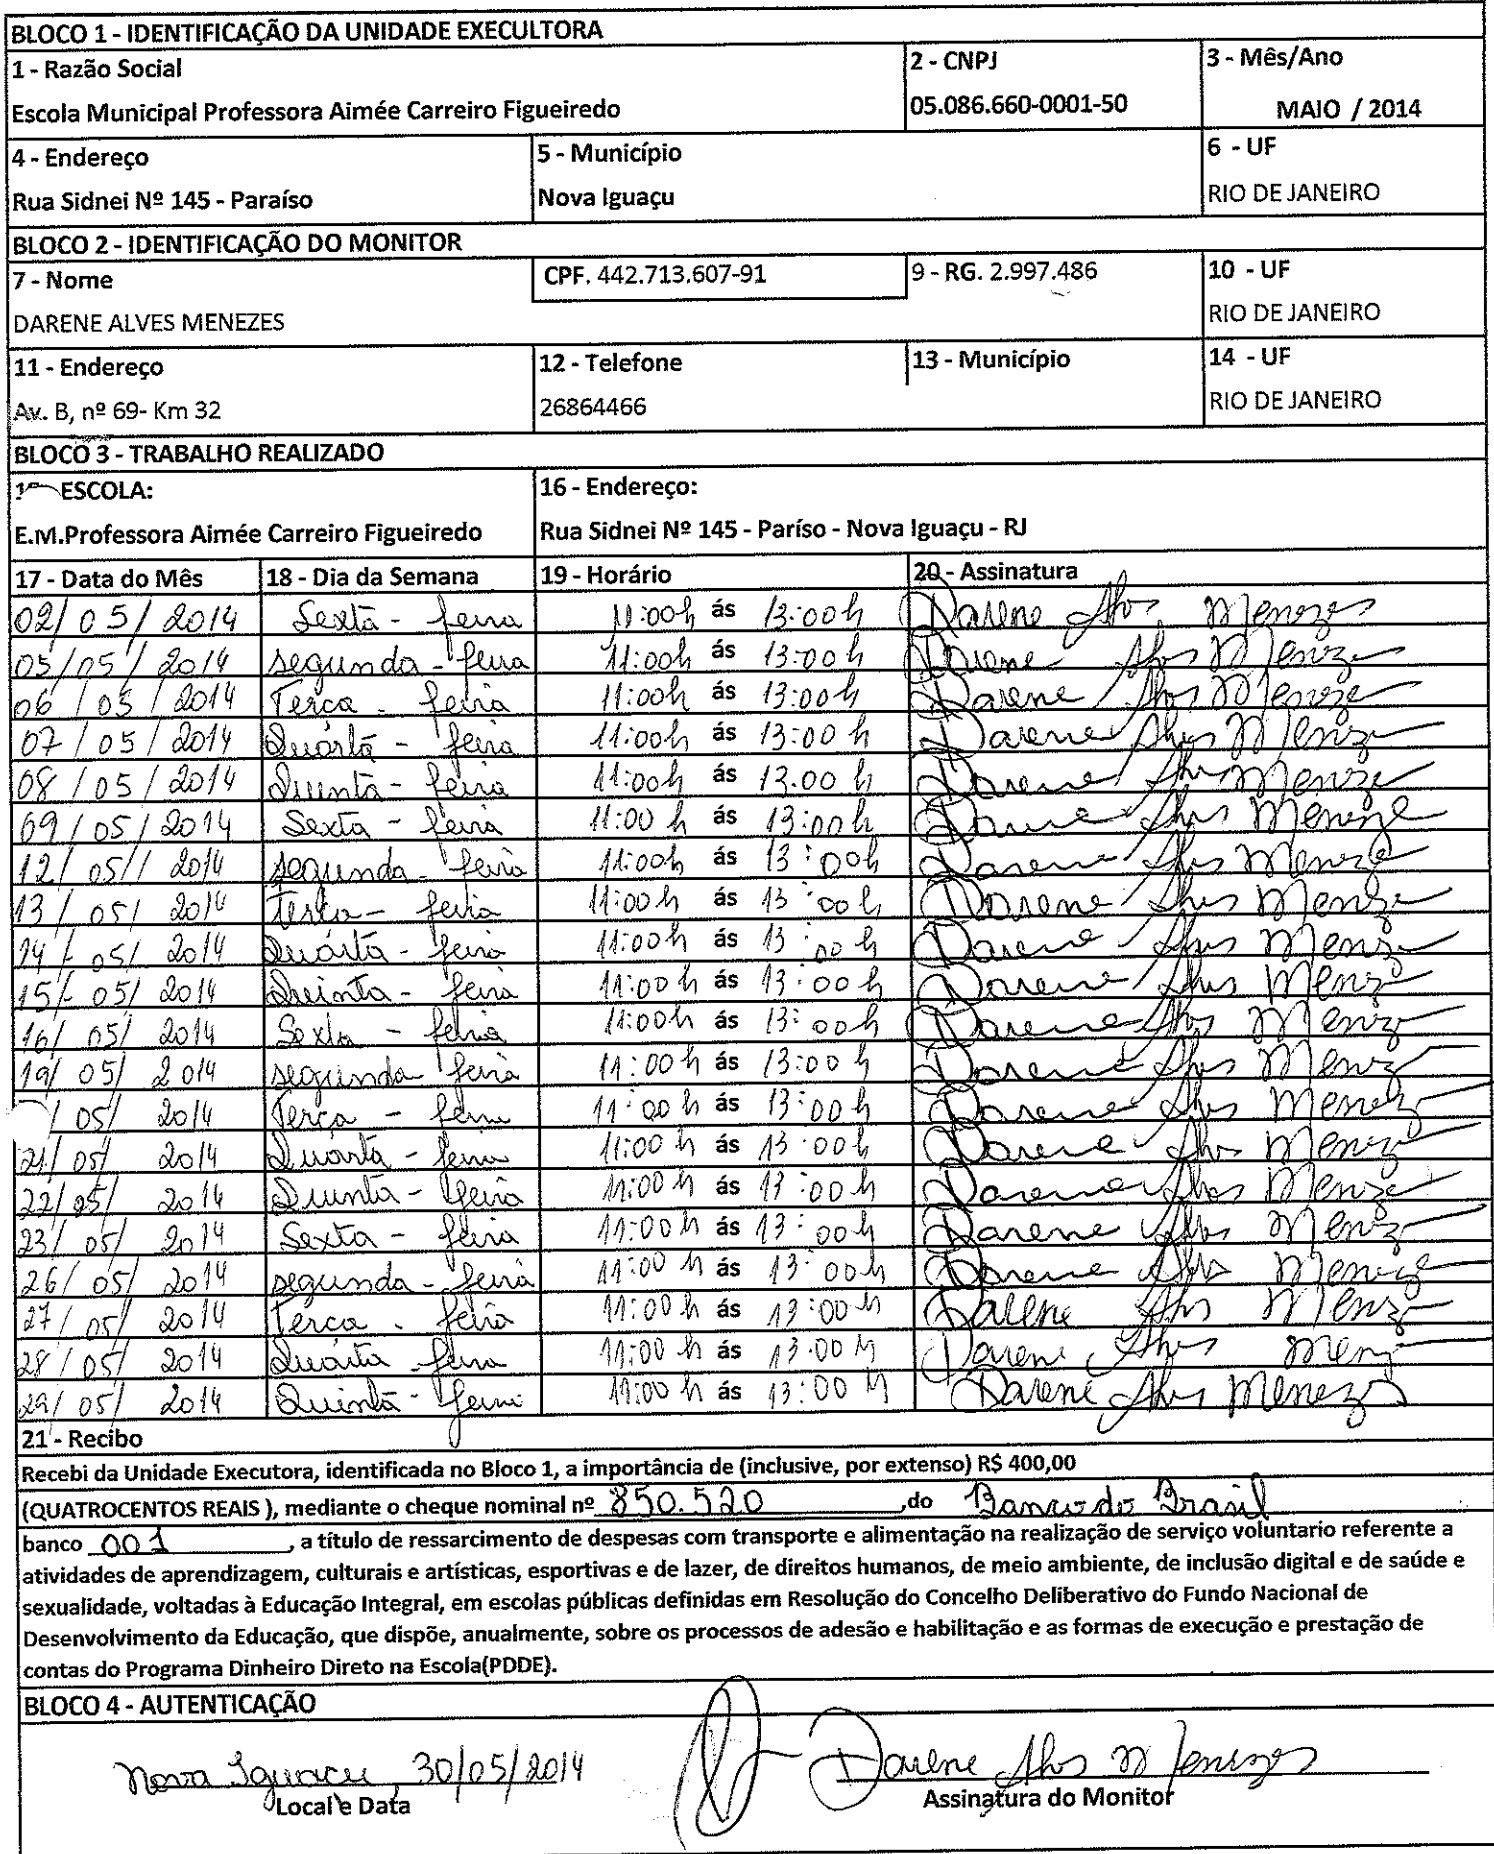 BLOCO 1 - IDENTIFICAÇÃO DA UNIDADE EXECULTORA
1 - Razão Social 2 - CNPJ 3 - Mês/Ano
Escola Municipal Professora Aimée Carreiro Figueiredo 05.086.660-0001-50 MAIO / 2014
4 - Endereço 5 - Município 6 - UF
Rua Sidnei Nº 145 - Paraíso Nova Iguaçu RIO DE JANEIRO
BLOCO 2 - IDENTIFICAÇÃO DO MONITOR
7 - Nome CPF. 442.713.607-91 9 - RG. 2.997.486 10 - UF
DARENE ALVES MENEZES RIO DE JANEIRO
11 - Endereço 12 - Telefone 13 - Município 14 - UF
Av. B, nº 69- Km 32 26864466 RIO DE JANEIRO
BLOCO 3 - TRABALHO REALIZADO
ESCOLA: 16 - Endereço:
E.M.Professora Aimée Carreiro Figueiredo Rua Sidnei Nº 145 - Paríso - Nova Iguaçu - RJ
17 - Data do Mês 18 - Dia da Semana 19 - Horário 20 - Assinatura
02/05/2014 Sexta - feira 11:00h ás 13:00h Darene Alves Menezes
05/05/2014 segunda - feira 11:00h ás 13:00h Darene Alves Menezes
06/05/2014 Terça - feira 11:00h ás 13:00h Darene Alves Menezes
07/05/2014 Quarta - feira 11:00h ás 13:00h Darene Alves Menezes
08/05/2014 Quinta - feira 11:00h ás 13:00h Darene Alves Menezes
09/05/2014 Sexta - feira 11:00h ás 13:00h Darene Alves Menezes
12/05/2014 segunda - feira 11:00h ás 13:00h Darene Alves Menezes
13/05/2014 Terça - feira 11:00h ás 13:00h Darene Alves Menezes
14/05/2014 Quarta - feira 11:00h ás 13:00h Darene Alves Menezes
15/05/2014 Quinta - feira 11:00h ás 13:00h Darene Alves Menezes
16/05/2014 Sexta - feira 11:00h ás 13:00h Darene Alves Menezes
19/05/2014 segunda - feira 11:00h ás 13:00h Darene Alves Menezes
/05/2014 Terça - feira 11:00h ás 13:00h Darene Alves Menezes
21/05/2014 Quarta - feira 11:00h ás 13:00h Darene Alves Menezes
22/05/2014 Quinta - feira 11:00h ás 13:00h Darene Alves Menezes
23/05/2014 Sexta - feira 11:00h ás 13:00h Darene Alves Menezes
26/05/2014 segunda - feira 11:00h ás 13:00h Darene Alves Menezes
27/05/2014 Terça - feira 11:00h ás 13:00h Darene Alves Menezes
28/05/2014 Quarta - feira 11:00h ás 13:00h Darene Alves Menezes
29/05/2014 Quinta - feira 11:00h ás 13:00h Darene Alves Menezes
21 - Recibo
Recebi da Unidade Executora, identificada no Bloco 1, a importância de (inclusive, por extenso) R$ 400,00
(QUATROCENTOS REAIS ), mediante o cheque nominal nº 850.520 ,do Banco do Brasil
banco 001 , a título de ressarcimento de despesas com transporte e alimentação na realização de serviço voluntario referente a
atividades de aprendizagem, culturais e artísticas, esportivas e de lazer, de direitos humanos, de meio ambiente, de inclusão digital e de saúde e
sexualidade, voltadas à Educação Integral, em escolas públicas definidas em Resolução do Concelho Deliberativo do Fundo Nacional de
Desenvolvimento da Educação, que dispõe, anualmente, sobre os processos de adesão e habilitação e as formas de execução e prestação de
contas do Programa Dinheiro Direto na Escola(PDDE).
BLOCO 4 - AUTENTICAÇÃO
Nova Iguacu, 30/05/2014 Darene Alves Menezes
Local e Data Assinatura do Monitor